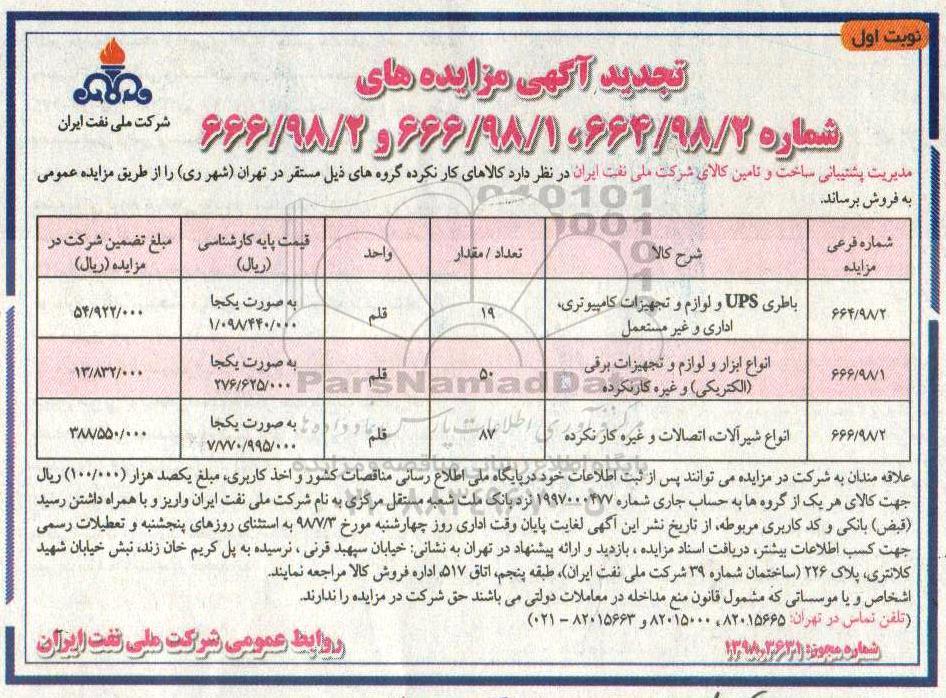 نوبت اول
شرکت ملی نفت ایران
تجدید آگهی مزایده های
شماره ۶۶۴/۹۸/۲، ۶۶۶/۹۸/۱ و ۶۶۶/۹۸/۲
مدیریت پشتیبانی ساخت و تامین کالای شرکت ملی نفت ایران در نظر دارد کالاهای کار نکرده گروه های ذیل مستقر در تهران (شهر ری) را از طریق مزایده عمومی
به فروش برساند.
شماره فرعی مزایده | شرح کالا | تعداد / مقدار | واحد | قیمت پایه کارشناسی (ریال) | مبلغ تضمین شرکت در مزایده (ریال)
۶۶۴/۹۸/۲ | باطری UPS و لوازم و تجهیزات کامپیوتری، اداری و غیر مستعمل | ۱۹ | قلم | به صورت یکجا ۱/۰۹۸/۴۴۰/۰۰۰ | ۵۴/۹۲۲/۰۰۰
۶۶۶/۹۸/۱ | انواع ابزار و لوازم و تجهیزات برقی (الکتریکی) و غیره کارنکرده | ۵۰ | قلم | به صورت یکجا ۲۷۶/۶۲۵/۰۰۰ | ۱۳/۸۳۲/۰۰۰
۶۶۶/۹۸/۲ | انواع شیرآلات، اتصالات و غیره کار نکرده | ۸۷ | قلم | به صورت یکجا ۷/۷۷۰/۹۹۵/۰۰۰ | ۳۸۸/۵۵۰/۰۰۰
ParsNamadData
علاقه مندان به شرکت در مزایده می توانند پس از ثبت اطلاعات خود در پایگاه ملی اطلاع رسانی مناقصات کشور و اخذ کاربری، مبلغ یکصد هزار (۱۰۰/۰۰۰) ریال
جهت کالای هر یک از گروه ها به حساب جاری شماره ۱۹۹۷۰۰۰۴۷۷ نزد بانک ملت شعبه مستقل مرکزی به نام شرکت ملی نفت ایران واریز و با همراه داشتن رسید
(قبض) بانکی و کد کاربری مربوطه، از تاریخ نشر این آگهی لغایت پایان وقت اداری روز چهارشنبه مورخ ۹۸/۷/۳ به استثنای روزهای پنجشنبه و تعطیلات رسمی
جهت کسب اطلاعات بیشتر، دریافت اسناد مزایده ، بازدید و ارائه پیشنهاد در تهران به نشانی: خیابان سپهبد قرنی ، نرسیده به پل کریم خان زند، نبش خیابان شهید
کلانتری، پلاک ۲۲۶ (ساختمان شماره ۳۹ شرکت ملی نفت ایران)، طبقه پنجم، اتاق ۵۱۷، اداره فروش کالا مراجعه نمایند.
اشخاص و یا موسساتی که مشمول قانون منع مداخله در معاملات دولتی می باشند حق شرکت در مزایده را ندارند.
(تلفن تماس در تهران: ۸۲۰۱۵۶۶۵، ۸۲۰۱۵۰۰۰ و ۸۲۰۱۵۶۶۳ – ۰۲۱)
شماره مجوز: ۱۳۹۸.۳۶۳۱
روابط عمومی شرکت ملی نفت ایران